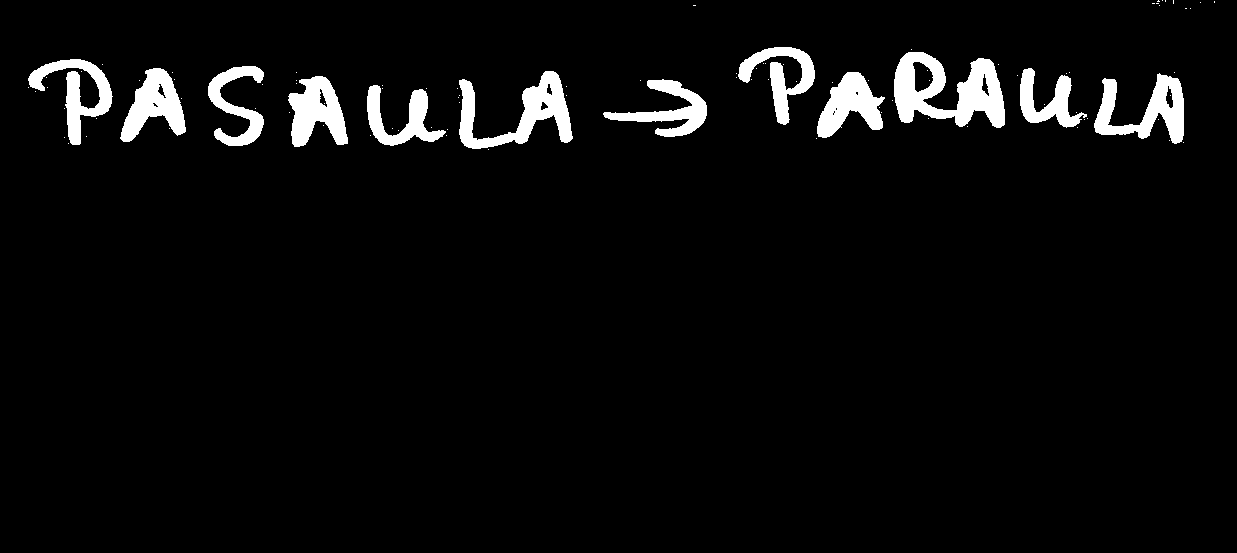 PASAULA → PARAULA